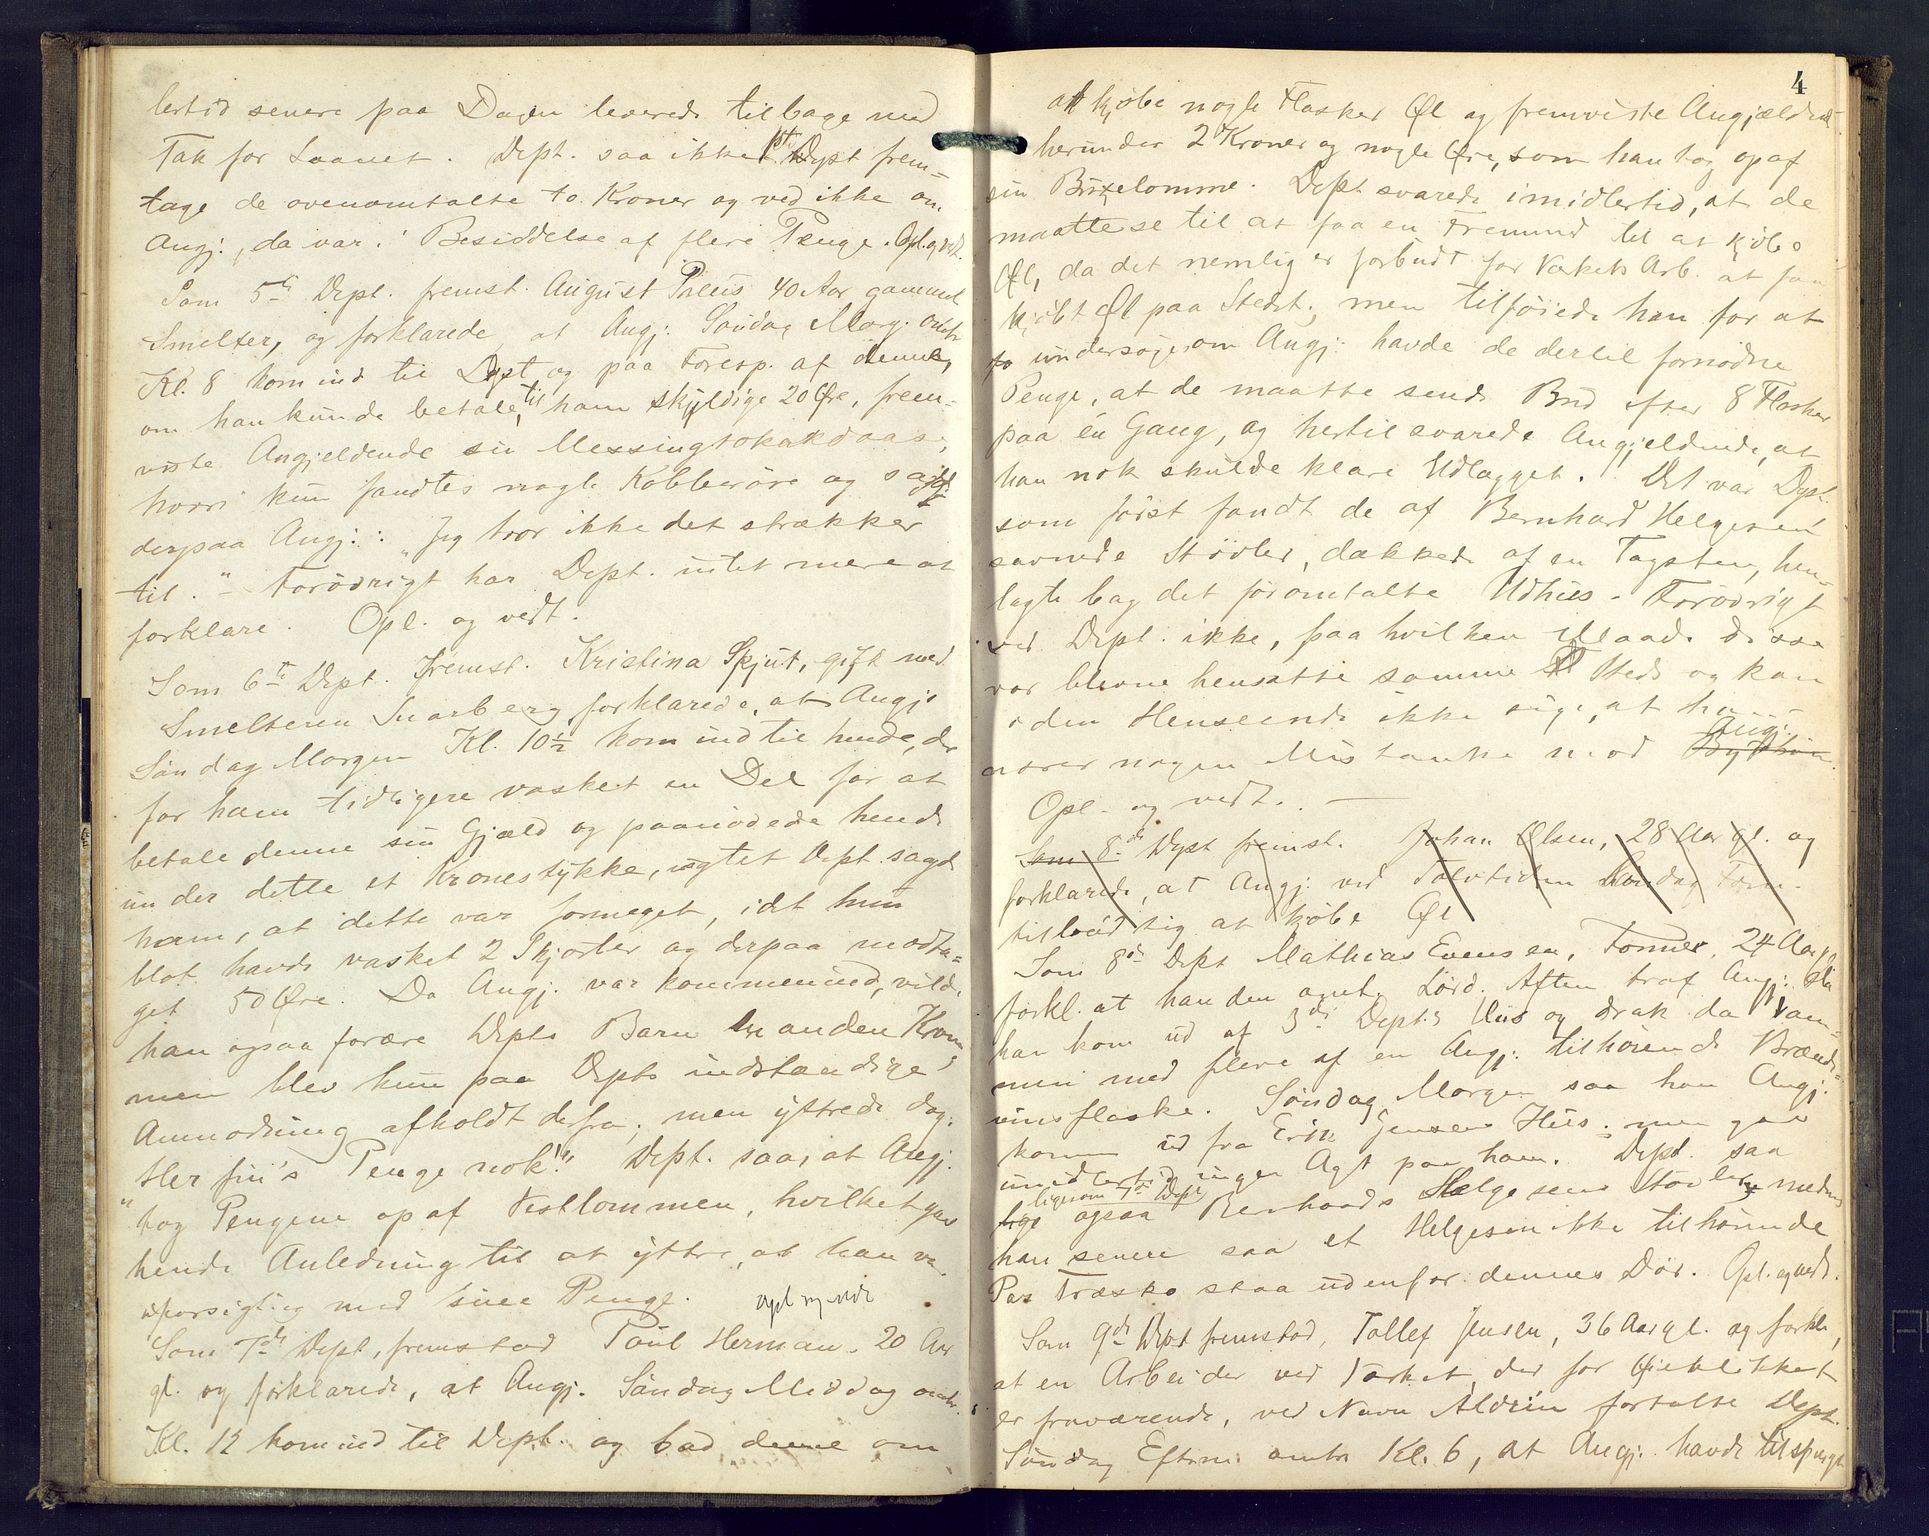 lertid senere paa Dagen leverede tilbage med
Tak for Laanet. Dept. saa ikke Dept frem-
tage de ovenomtalte to Kroner og ved ikke om
Angj:, da var i Besiddelse af flere Penge. Opl. og vedt.
Som 5te Dept. fremst. August Preus 40 Aar gammel
Smelter, og forklarede, at Angj: Søndag Morg. omtr
Kl. 8 kom ind til Dept og paa Foresp. af denne,
om han kunde betale til ham skyldige 20 Øre, frem-
viste Angjeldende sin Messingtobakdaase,
hvori kun fandtes nogle Kobberøre og sagde
derpaa Angj:: "Jeg tror ikke det strækker
til." - Forøvrigt har Dept. intet mere at
forklare. Opl. og vedt.
Som 6te Dept. fremst. Kristina Spjut, gift med
Smelteren Snarberg forklarede, at Angj:
Søndag Morgen Kl. 10½ kom ind til hende, der
for ham tidligere vasket en Del for at
betale denne sin Gjæld og paanødede hende
under dette et Kronestykke, uagtet Dept. sagde
ham, at dette var formeget, idet hun
blot havde vasket 2 Skjorter og derpaa modta-
get 50 Øre. Da Angj. var kommen ind, vilde
han ogsaa forære Depts Barn en anden Krone,
men blev kun paa Depts indstændige
Anmodning afholdt derfra; men yttrede dog:
"Her fin's Penge nok!" Dept. saa, at Angj.
tog Pengene op af Vestlommen, hvilket gav
hende Anledning til at yttre, at han var
uforsigtig med sine Penge. opl og vedt
Som 7de Dept, fremstod Paul Herman. 20 Aar
gl. og forklarede, at Angj. Søndag Middag omtr.
Kl. 12 kom ind til Dept. og bad denne om
4
at kjøbe nogle Flasker Øl og fremviste Angjældende
herunder 2 Kroner og nogle Øre, som han tog op af
sin Buxelomme. Dept svarede imidlertid, at de
maatte se til at faa en Fremmed til at kjøbe
Øl, da det nemlig er forbudt for Værkets Arb. at faa
kjøbt Øl paa Stedet; men tilføiede han for at
undersøge, om Angj: havde de dertil fornødne
Penge, at de maatte sende Bud efter 8 Flasker
paa én Gang, og hertil svarede Angjeldende, at
han nok skulde klare Udlægget. Det var Dept.
som først fandt de af Bernhard Helgesen
savnede Støvler, dækkede af en Tagsten, hen-
lagte bag det føromtalte Udhus. Forøvrigt
ved Dept. ikke, paa hvilken Maade disse
var blevne hensatte samme Sted og kan
i den Henseende ikke sige, at han
nærer nogen Mistanke mod Angj:
Opl. og vedt. —
Som 8de Dept fremst. Johan Olsen, 28 Aar gl. og
forklarede, at Angj. ved Tolvtiden Søndag Form.
tilbud sig at kjøbe Øl
Som 8de Dept Mathias Evensen, Former, 24 Aar,
forkl. at han den omt. Lørd. Aften traf Angj: da
han kom ud af 3die Depts Hus og drak da sam-
men med flere af en Angj: tilhørende Brænde-
vinsflaske. Søndag Morgen saa han Angj.
komme ud fra Erik Jensens Hus; men gav
imidlertid ingen Agt paa ham. Dept. saa
ligesom 7de Dept
ogsaa Bernhards Helgesens Støvler, medens
han senere saa et Helgesen ikke tilhørende
Par Træsko staa udenfor dennes Dør. Opl. og vedt.
Som 9de Dept fremstod, Tollef Jensen, 36 Aar gl. og forkl.,
at en Arbeider ved Værket, der for Øieblikket
er fraværende, ved Navn Aldrin fortalte Dept.
Søndag Efterm. omtr. Kl. 6, at Angj. havde tilspurgt